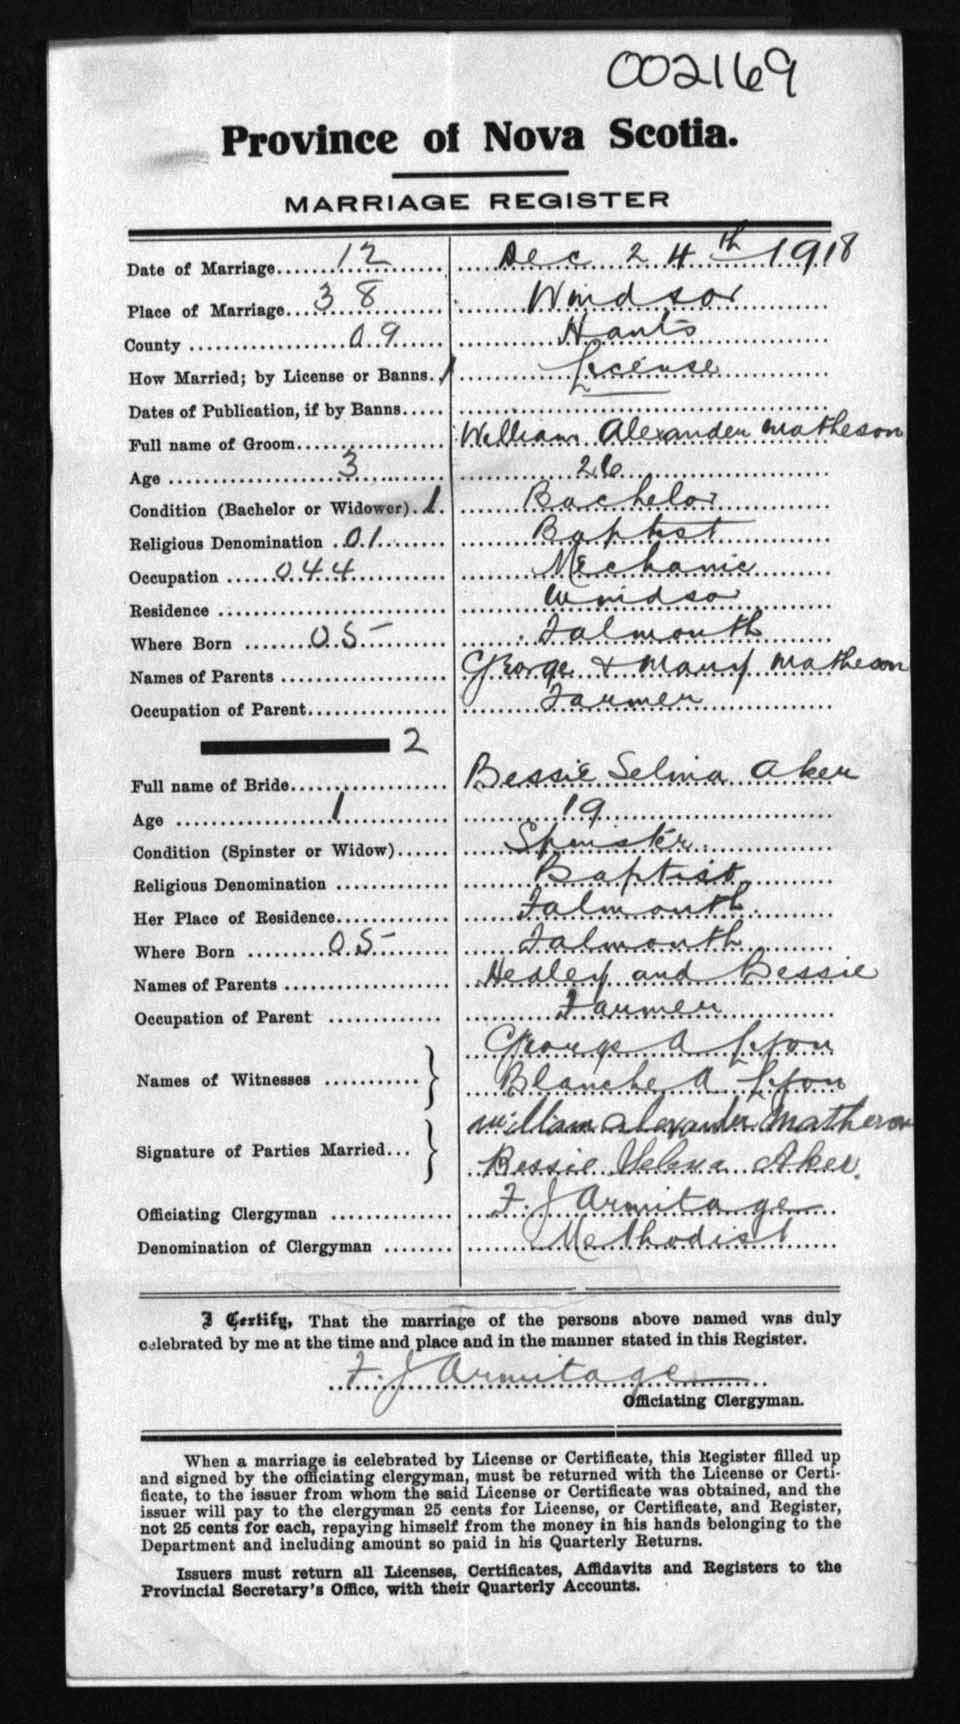 002169
Province of Nova Scotia.
MARRIAGE REGISTER
Date of Marriage 12 Dec 24th 1918
Place of Marriage 38 Windsor
County 09 Hants
How Married; by License or Banns. 1 License
Dates of Publication, if by Banns
Full name of Groom William Alexander Matheson
Age 3 26
Condition (Bachelor or Widower) 1 Bachelor
Religious Denomination 01 Baptist
Occupation 044 Mechanic
Residence Windsor
Where Born 05 Falmouth
Names of Parents George & Mary Matheson
Occupation of Parent Farmer
2
Full name of Bride Bessie Selma Aker
Age 1 19
Condition (Spinster or Widow) Spinster
Religious Denomination Baptist
Her Place of Residence Falmouth
Where Born 05 Falmouth
Names of Parents Hedley and Bessie
Occupation of Parent Farmer
Names of Witnesses } George A Lyon
Blanche A Lyon
Signature of Parties Married } William Alexander Matheson
Bessie Selma Aker.
Officiating Clergyman F. J Armitage
Denomination of Clergyman Methodist
I Certify, That the marriage of the persons above named was duly
celebrated by me at the time and place and in the manner stated in this Register.
F. J Armitage
Officiating Clergyman.
When a marriage is celebrated by License or Certificate, this Register filled up
and signed by the officiating clergyman, must be returned with the License or Certi-
ficate, to the issuer from whom the said License or Certificate was obtained, and the
issuer will pay to the clergyman 25 cents for License, or Certificate, and Register,
not 25 cents for each, repaying himself from the money in his hands belonging to the
Department and including amount so paid in his Quarterly Returns.
Issuers must return all Licenses, Certificates, Affidavits and Registers to the
Provincial Secretary's Office, with their Quarterly Accounts.